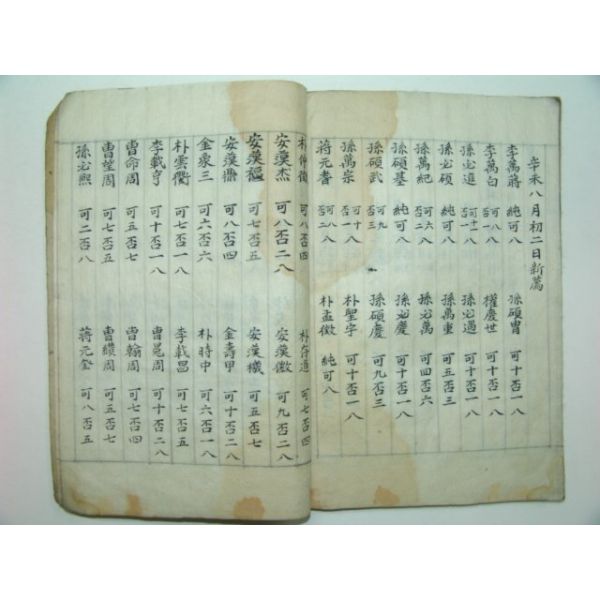 辛未八月初二日新薦
李萬蔣 純可八 孫碩胄 可十否一八
李萬白 可八否一八 權慶世 可十否一八
孫必進 可十一否一八 孫必過 可十否一八
孫必碩 純可八 孫萬重 可五否三
孫萬紀 可六否二八 孫必萬 可四否六
孫碩基 純可八 孫必慶 可十否一八
孫碩武 可九否三 孫碩慶 可九否三
孫萬宗 可十否一八 朴聖字 可十否一八
蔣元耆 可八否二八 朴孟徵 純可八
朴仲徵 可八否四 朴 道 可七否四
安漢杰 可八否二八 安漢徽 可九否二八
安漢樞 可七否五 安漢機 可五否七
安漢鼎 可八否四 金壽甲 可十否二八
金泉三 可六否六 朴時中 可六否一八
朴雲衢 可七否一八 李載昌 可七否五
李載亨 可十否一八 曺晃周 可十否二八
曺命周 可五否七 曺翰周 可七否四
曺望周 可五否七 曺纘周 可五否七
孫必熙 可二否八 蔣元奎 可八否五